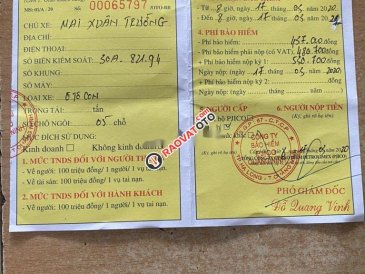 00065797
CHỦ XE: MAI XUÂN TRƯỜNG
ĐỊA CHỈ:
ĐIỆN THOẠI:
BIỂN KIỂM SOÁT: 30A. 821.94
SỐ KHUNG:
SỐ MÁY:
LOẠI XE: Ô TÔ CON
TRỌNG TẢI: tấn
SỐ CHỖ NGỒI: 05 chỗ
MỤC ĐÍCH SỬ DỤNG:
Kinh doanh Không kinh doanh
1. MỨC TNDS ĐỐI VỚI NGƯỜI THỨ
Về người: 100 triệu đồng/ 1 vụ tai nạn.
Về tài sản: 100 triệu đồng/ 1 vụ tai nạn.
2. MỨC TNDS ĐỐI VỚI HÀNH KHÁCH
- Về người: 100 triệu đồng/ 1 người/ 1 vụ tai nạn.
Từ 8 giờ, ngày 17 tháng 05 /2020
Đến 8 giờ, ngày 17 tháng 05
4. PHÍ BẢO HIỂM
+ Phí bảo hiểm: 437.000 đồng
+ Phí bảo hiểm phải nộp (có VAT): 480.700 đồng
+ Phí bảo hiểm nộp kỳ 1: đồng
Ngày nộp: 17 tháng 05 /2020
Ngày nộp: tháng
NGƯỜI CẤP
NGƯỜI NỘP TIỀN
CÔNG TY
BẢO HIỂM
PJICO
PHÓ GIÁM ĐỐC
Đỗ Quang Vinh
RAOVATOTO.VN